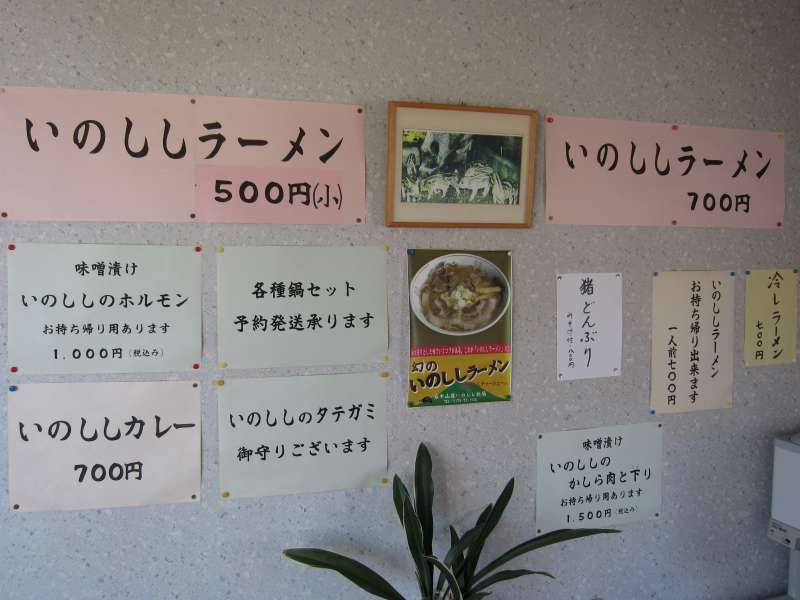 いのししラーメン
500円(小)
いのししラーメン
700円
味噌漬け
いのししのホルモン
お持ち帰り用あります
1.000円(税込み)
各種鍋セット
予約発送承ります
幻の
いのししラーメン
猪どんぶり
いのししラーメン
お持ち帰り出来ます
一人前七00円
冷しラーメン
七00円
いのししカレー
700円
いのししのタテガミ
御守りございます
味噌漬け
いのししの
かしら肉と下り
お持ち帰り用あります
1.500円(税込み)